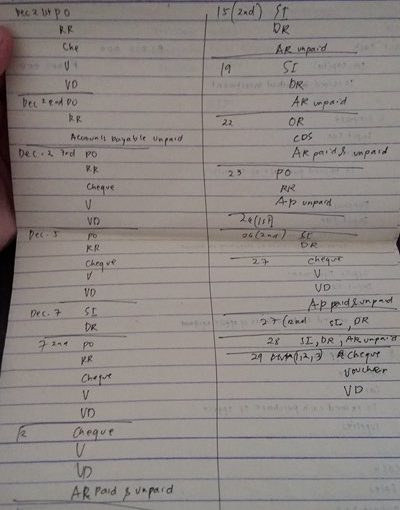 Dec 2 1st PO
RR
Che
V
VD
Dec 2 2nd PO
RR
Accounts payable unpaid
Dec. 2 3rd PO
RR
Cheque
V
VD
Dec. 5 PO
RR
Cheque
V
VD
Dec. 7 SI
DR
7 2nd PO
RR
Cheque
V
VD
12 Cheque
V
VD
AR Paid & unpaid
15 (2nd) SI
DR
AR unpaid
19 SI
DR
AR unpaid
22 OR
CDS
AR paid & unpaid
23 PO
RR
AP unpaid
24 (1st)
24 (2nd) SI
DR
27 Cheque
V
VD
AP paid & unpaid
27 (2nd SI, DR
28 SI, DR, AR unpaid
29 (1, 2, 3) Cheque
Voucher
VD